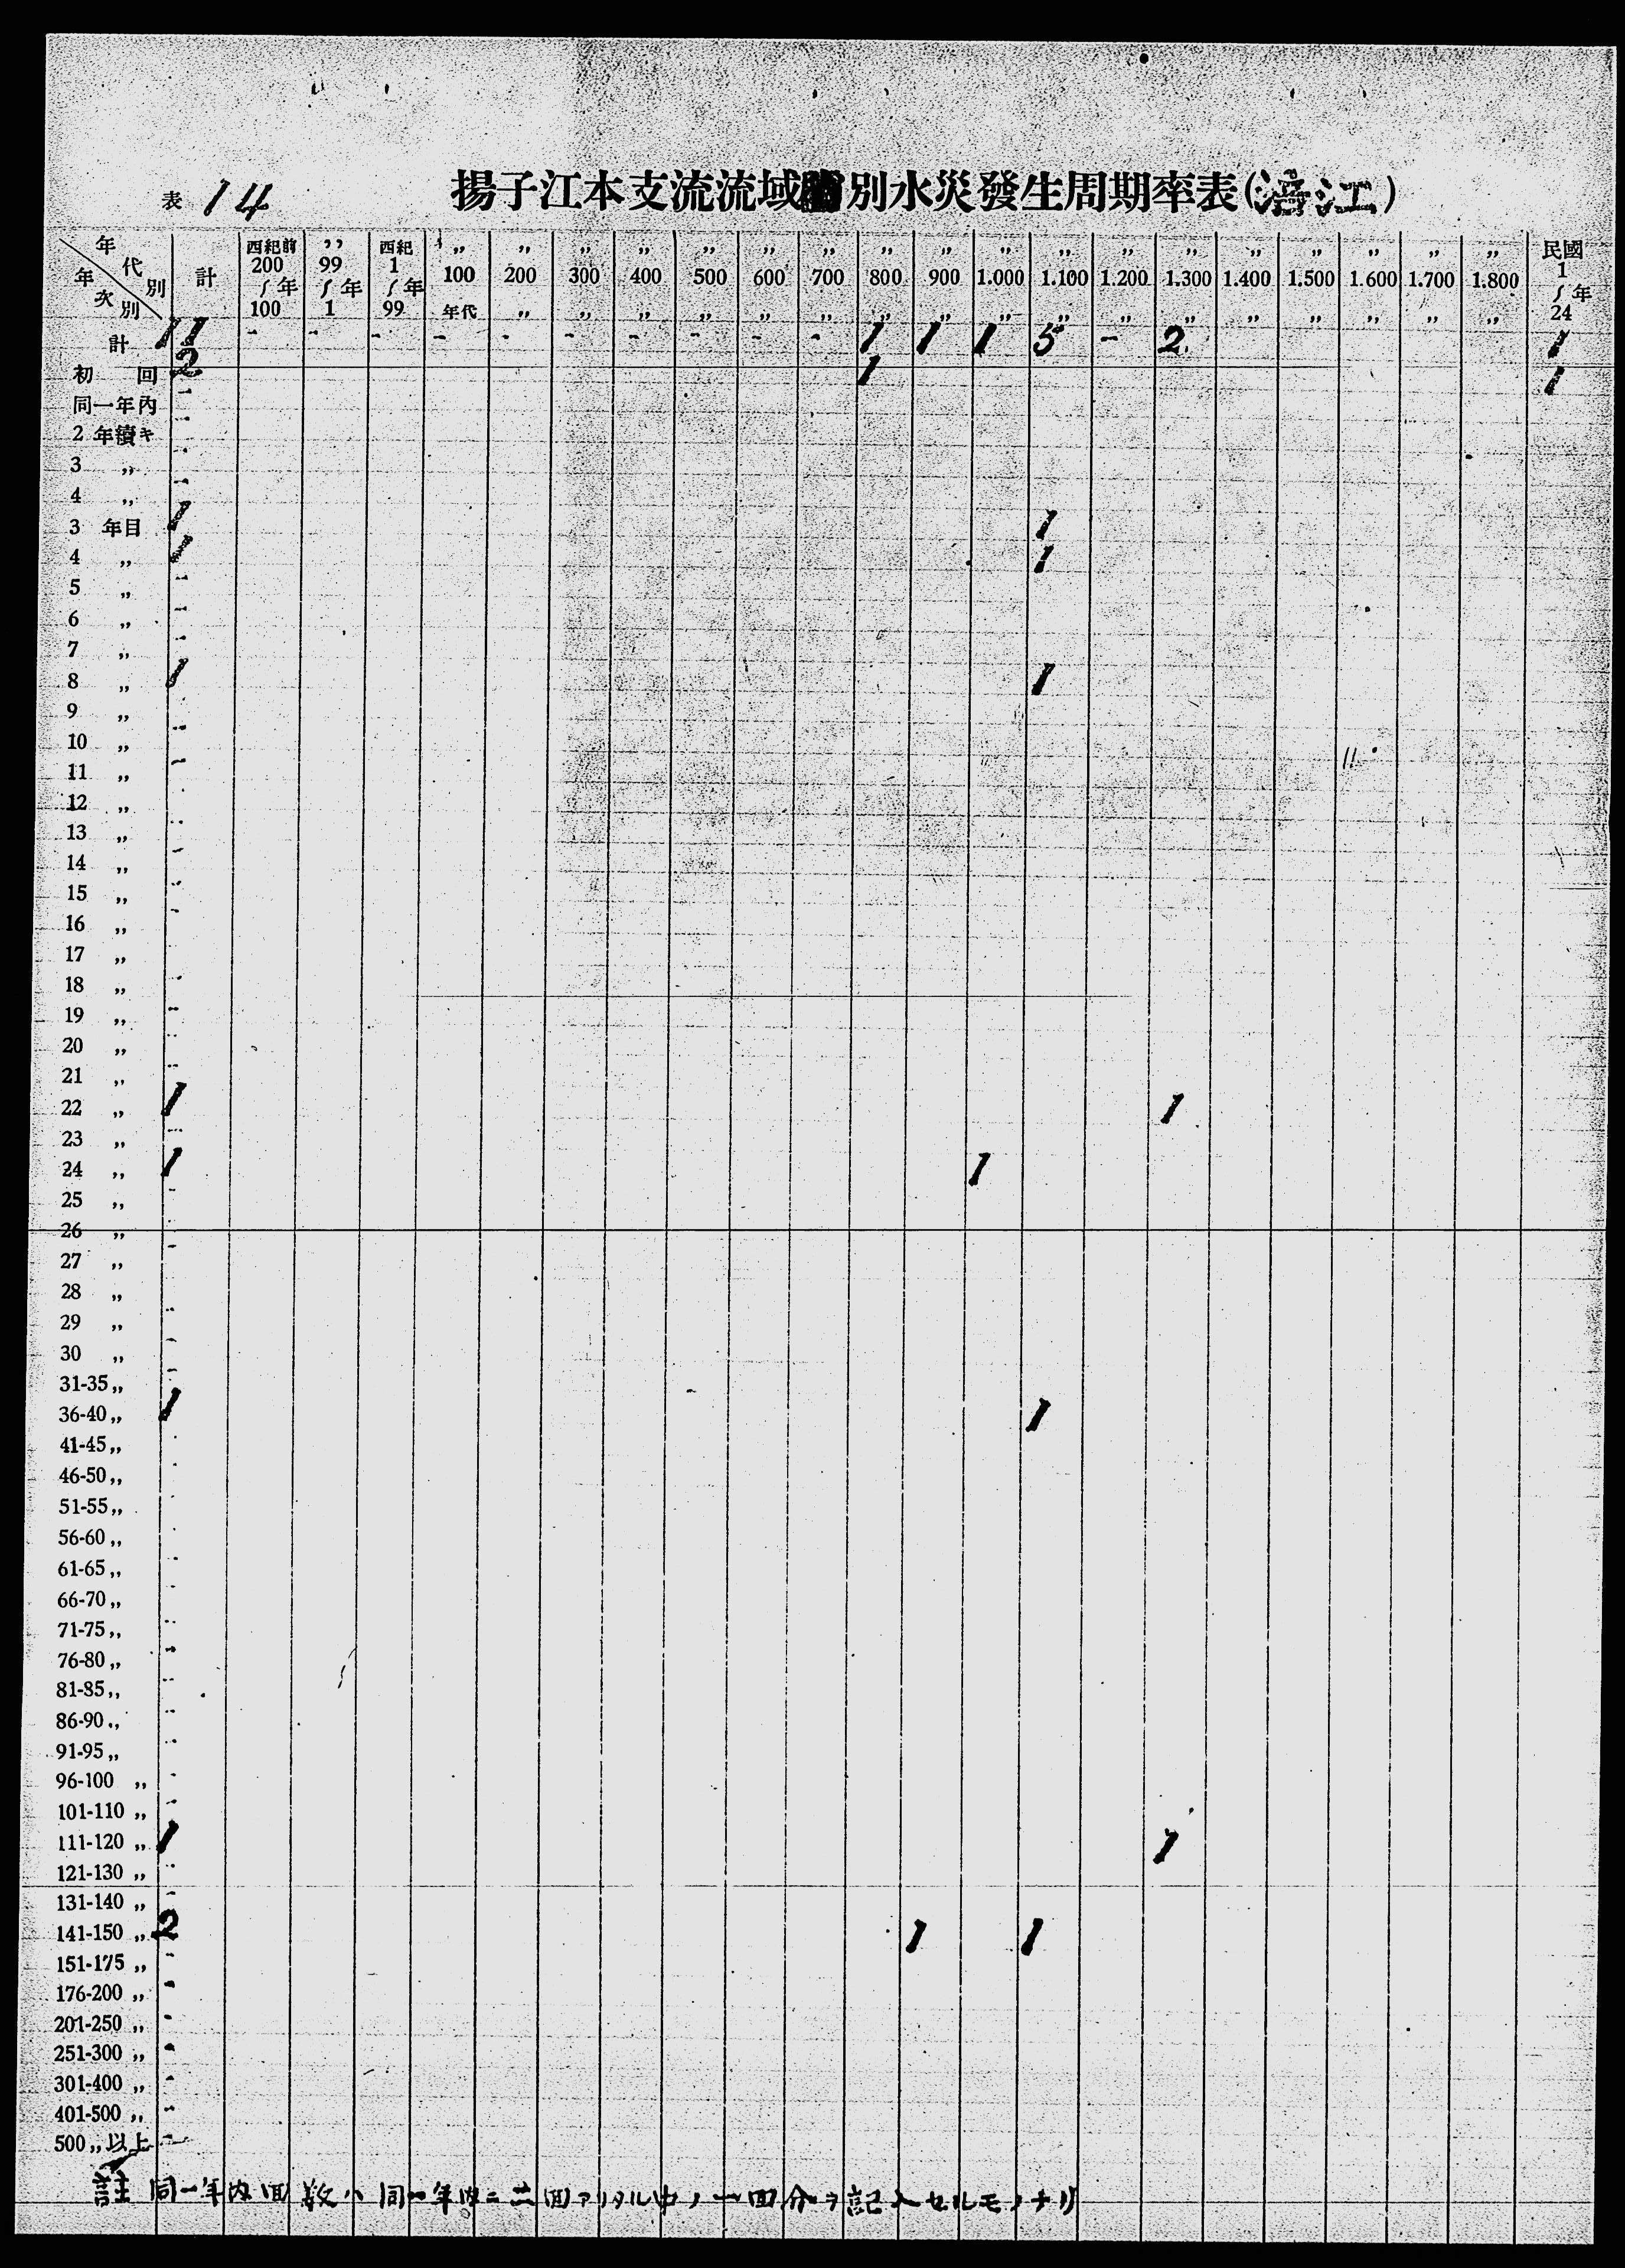 表 14
揚子江本支流流域別水災發生周期率表(涪江)
年代別 年次別 計 西紀前200〜100年 〃99〜1年 西紀1〜99年 〃100年代 〃200〃 〃300〃 〃400〃 〃500〃 〃600〃 〃700〃 〃800〃 〃900〃 〃1.000〃 〃1.100〃 〃1.200〃 〃1.300〃 〃1.400〃 〃1.500〃 〃1.600〃 〃1.700〃 〃1.800〃 民國1〜24年
計 11 - - - - - - - - - - 1 1 1 5 - 2 1
初回 2 1 1
同一年內 -
2 年續キ -
3 〃 -
4 〃 -
3 年目 1 1
4 〃 1 1
5 〃 -
6 〃 -
7 〃 -
8 〃 1 1
9 〃
10 〃 -
11 〃 -
12 〃
13 〃 -
14 〃 -
15 〃 -
16 〃 -
17 〃
18 〃 -
19 〃 -
20 〃 -
21 〃 -
22 〃 1 1
23 〃 -
24 〃 1 1
25 〃 -
26 〃 -
27 〃 -
28 〃
29 〃 -
30 〃 -
31-35〃 -
36-40〃 1 1
41-45〃 -
46-50〃 -
51-55〃 -
56-60〃 -
61-65〃 -
66-70〃 -
71-75〃 -
76-80〃 -
81-85〃 -
86-90〃 -
91-95〃 -
96-100 〃 -
101-110 〃 -
111-120 〃 1 1
121-130 〃 -
131-140 〃 -
141-150 〃 2 1 1
151-175 〃 -
176-200 〃 -
201-250 〃 -
251-300 〃 -
301-400 〃 -
401-500 〃 -
500〃以上 -
註 同一年内回数ハ同一年内ニ二回アリタル中ノ一回分ヲ記入セルモノナリ